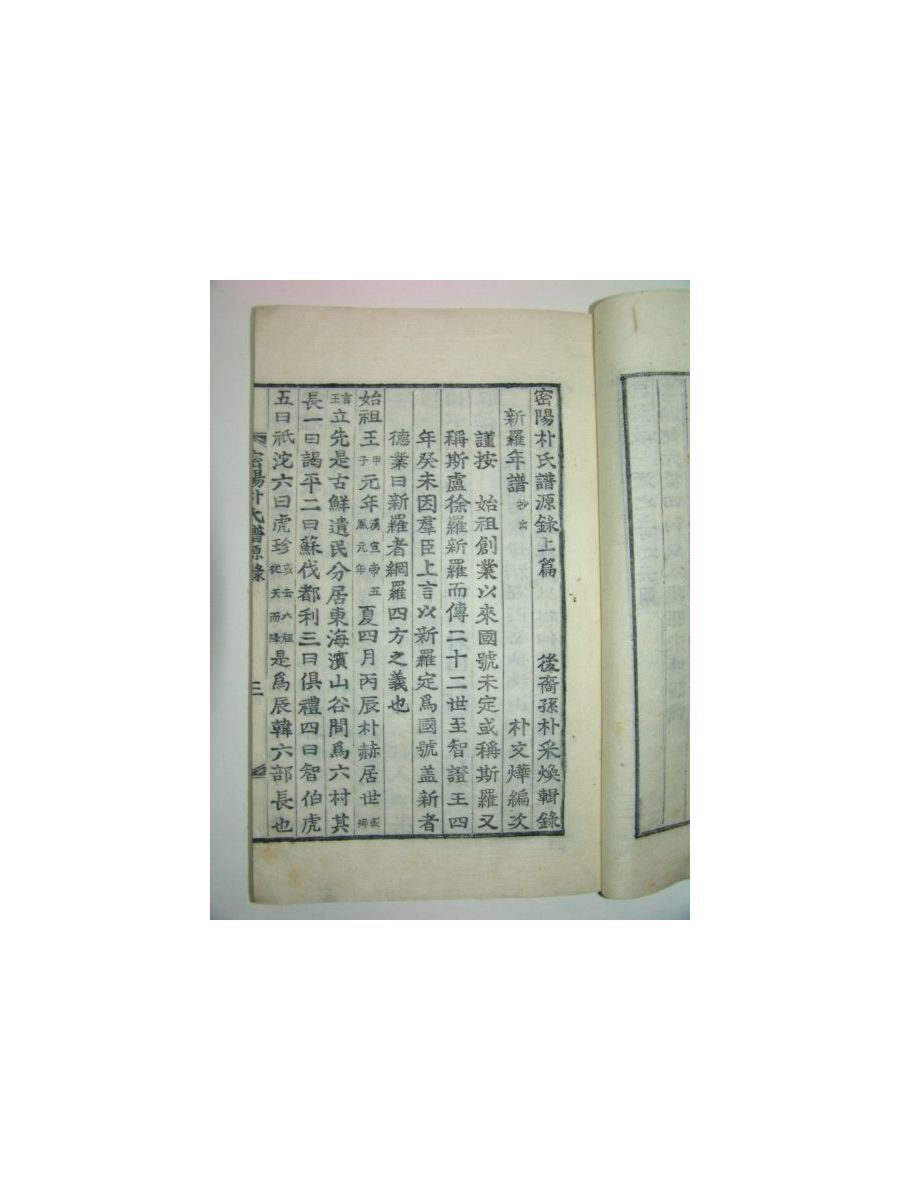 密陽朴氏譜源錄上篇 後裔孫朴采煥輯錄
新羅年譜 抄出 朴文燁編次
謹按 始祖創業以來國號未定或稱斯羅又
稱斯盧徐羅新羅而傳二十二世至智證王四
年癸未因羣臣上言以新羅定爲國號盖新者
德業日新羅者網羅四方之義也
始祖王甲子元年漢宣帝五鳳元年夏四月丙辰朴赫居世或
言王立先是古鮮遺民分居東海濱山谷間爲六村其
長一曰謁平二曰蘇伐都利三曰俱禮四曰智伯虎
五曰祇沱六曰虎珍或云六祖從天而降是爲辰韓六部長也
密陽朴氏譜源錄 三